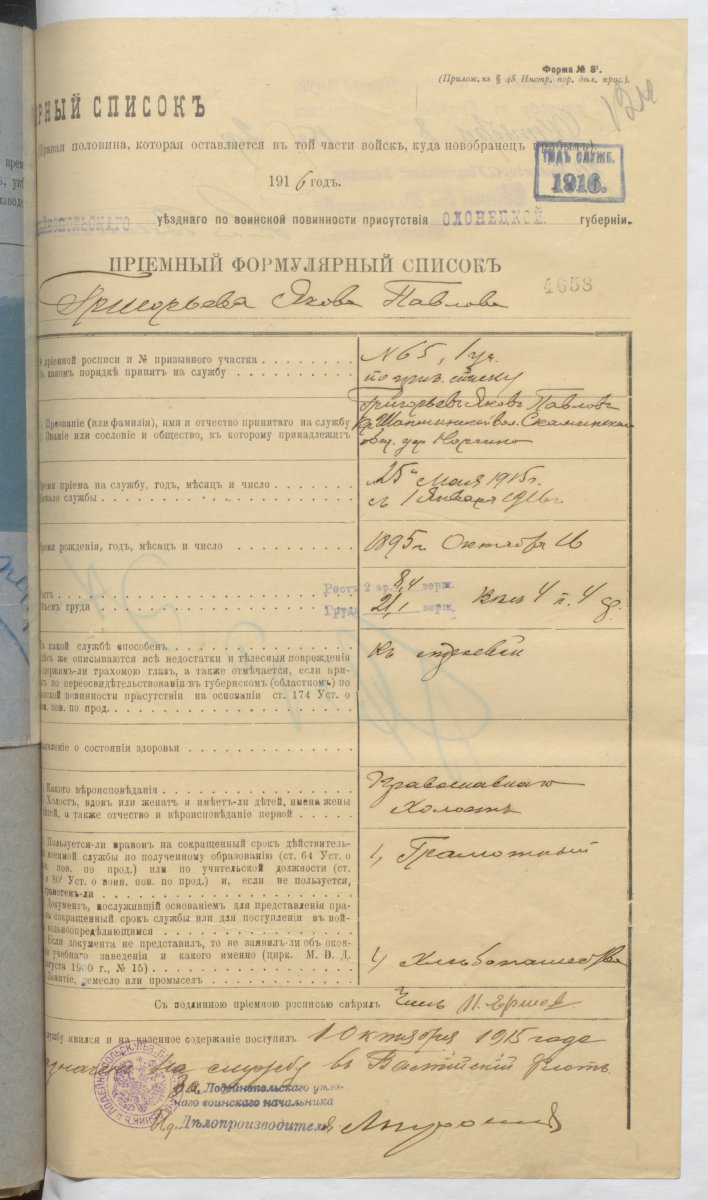 Форма № 3¹.
(Прилож. къ § 48 Инстр. пор. дѣл. прис.).
РНЫЙ СПИСОКЪ
(Правая половина, которая оставляется въ той части войскъ, куда новобранецъ прибылъ).
1916 годъ.
ГОДЪ СЛУЖБ.
1916.
ѢЙНОПОЛЬСКАГО уѣзднаго по воинской повинности присутствія ОЛОНЕЦКОЙ губерніи.
ПРІЕМНЫЙ ФОРМУЛЯРНЫЙ СПИСОКЪ
4658
Григорьева Якова Павлова
№ пріемной росписи и № призывного участка
въ какомъ порядкѣ принятъ на службу
N 65, 1 уч.
по приз. списку
Прозваніе (или фамилія), имя и отчество принятаго на службу
Званіе или сословіе и общество, къ которому принадлежитъ
Григорьевъ Яковъ Павловъ
кр. Шапшинской вол.
общ. дер.
Время пріема на службу, годъ, мѣсяцъ и число
Начало службы
25 Мая 1915 г.
съ 1 Января 1916 г.
Время рожденія, годъ, мѣсяцъ и число
1895 г. Октября 16
Ростъ
Объемъ груди
Ростъ 2 ар. 8,4 верш.
Груди 21,1 верш.
4 п. 4 ф.
Къ какой службѣ способенъ
Здѣсь же описываются всѣ недостатки и тѣлесныя поврежденія
одержимъ-ли трахомою глазъ, а также отмѣчается, если при-
нятъ по переосвидѣтельствованіи въ губернскомъ (областномъ) по
воинской повинности присутствіи на основаніи ст. 174 Уст. о
воин. пов. по прод.
Къ строевой
Заявленіе о состояніи здоровья
Какого вѣроисповѣданія
Холостъ, вдовъ или женатъ и имѣетъ-ли дѣтей, имена жены
дѣтей, а также отчество и вѣроисповѣданіе первой
Православнаго
Холостъ
Пользуется-ли правомъ на сокращенный срокъ дѣйствитель-
военной службы по полученному образованію (ст. 64 Уст. о
воин. пов. по прод.) или по учительской должности (ст.
и 80³ Уст. о воин. пов. по прод.) и, если не пользуется,
грамотенъ-ли
1, Грамотный
Документъ, послужившій основаніемъ для представленія пра-
на сокращенный срокъ службы или для поступленія въ вой-
вольноопредѣляющимся
Если документа не представилъ, то не заявилъ-ли объ окон-
учебнаго заведенія и какого именно (цирк. М. В. Д.
августа 1900 г., № 15)
Занятіе, ремесло или промыселъ
4, Хлѣбопашество
Съ подлинною пріемною росписью свѣрялъ Членъ Н. Ершов
службу явился и на казенное содержаніе поступилъ 1 Октября 1915 года
значенъ на службу въ Балтійскій флотъ.
За. Лодейнопольскаго уѣзд-
наго воинскаго начальника
И. д. Дѣлопроизводителя